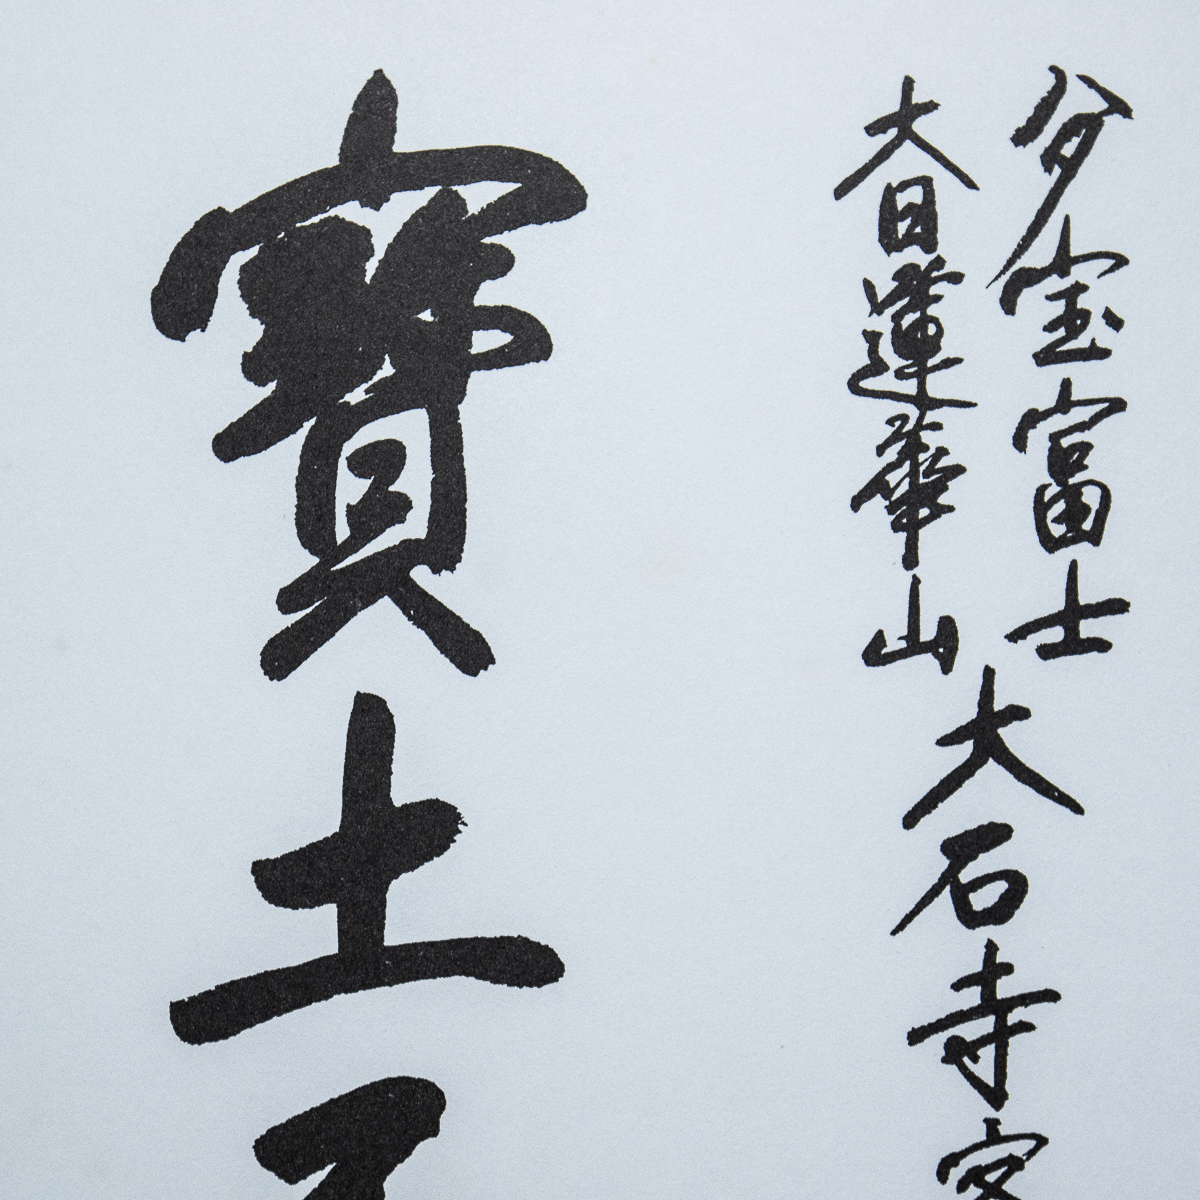 多宝富士
大日蓮華山
大石寺
寶土